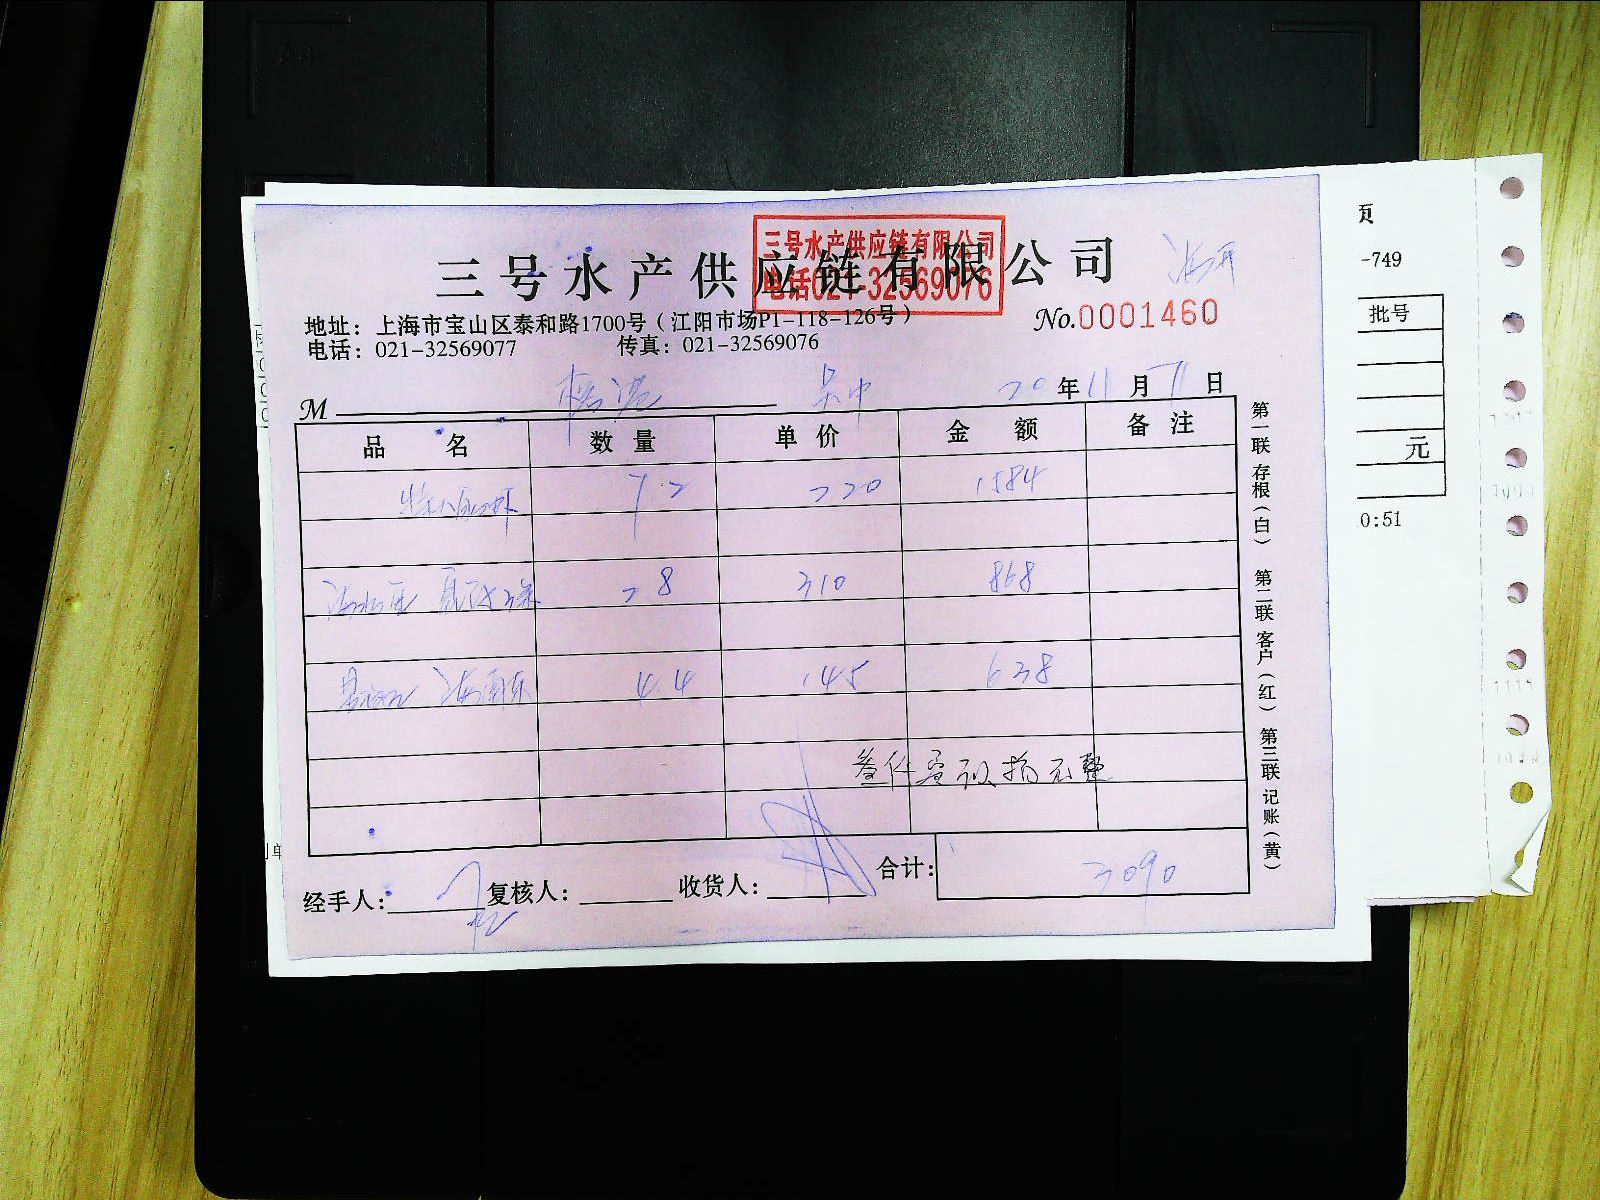 三号水产供应链有限公司
三号水产供应链有限公司
电话021-32569076
地址：上海市宝山区泰和路1700号（江阳市场P1-118-126号）
No.0001460
电话：021-32569077 传真：021-32569076
M 20年11月11日
品名 数量 单价 金额 备注
7.2 220 1584
2.8 310 868
4.4 145 638
叁仟零玖拾元整
合计：3090
经手人： 复核人： 收货人：
第一联 存根（白） 第二联 客户（红） 第三联 记账（黄）
页
-749
批号
元
0:51